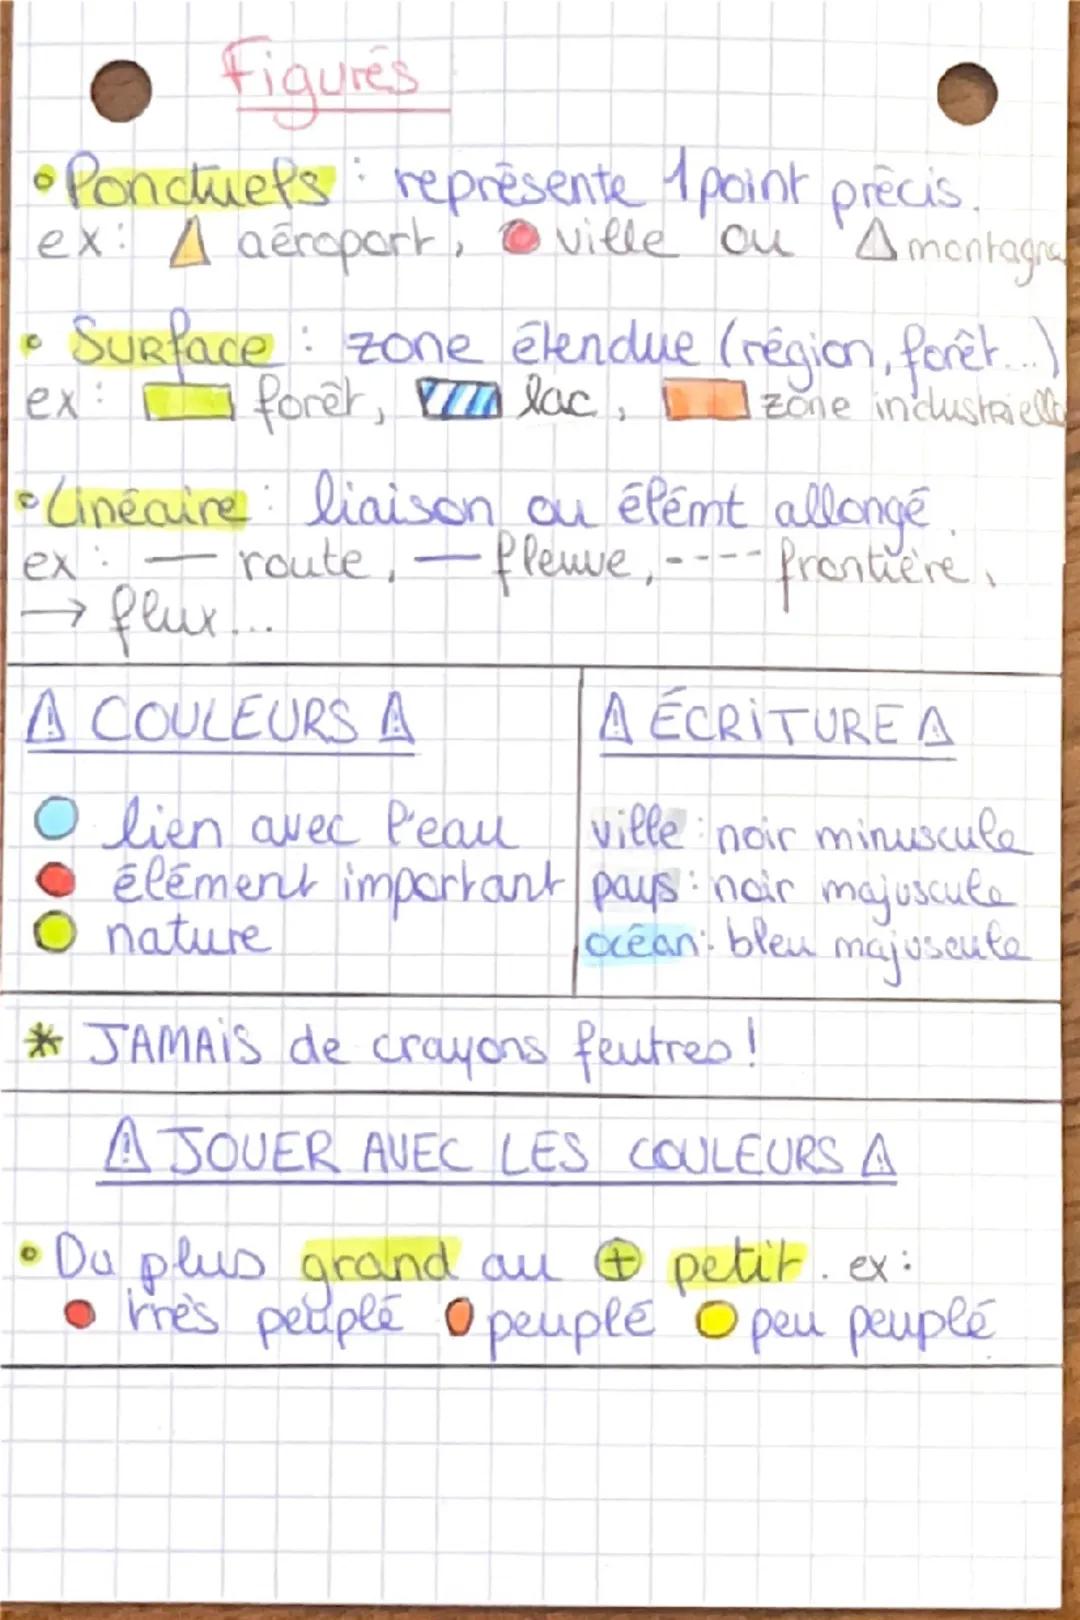 Figurés
• Ponctuels : représente 1 point précis.
ex : aéroport, ville ou montagne
• Surface : zone étendue (région, forêt...)
ex : forêt, lac, zone industrielle
• Linéaire : liaison ou élémt allongé.
ex : — route, — fleuve, ---- frontière,
→ flux...
⚠ COULEURS ⚠
lien avec l'eau
élément important
nature
⚠ ÉCRITURE ⚠
ville : noir minuscule
pays : noir majuscule
océan : bleu majuscule
* JAMAIS de crayons feutres !
⚠ JOUER AVEC LES COULEURS ⚠
• Du plus grand au + petit. ex :
très peuplé peuplé peu peuplé